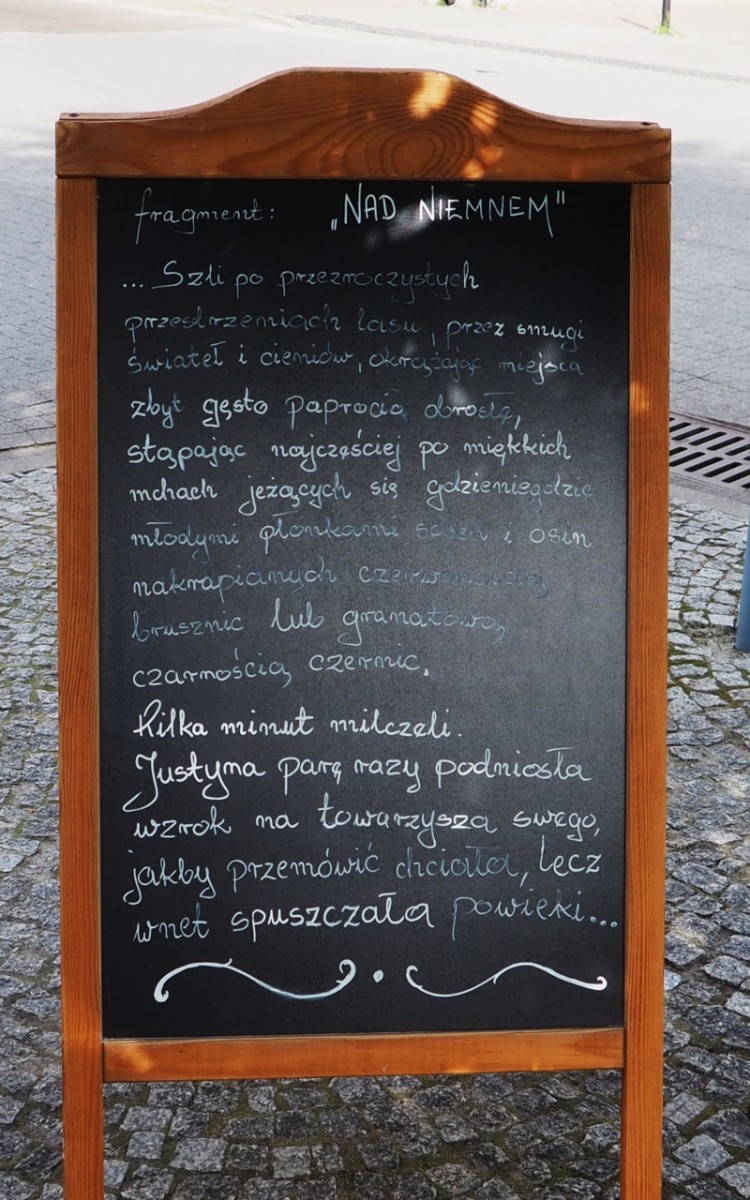 fragment: „NAD NIEMNEM"
... Szli po przezroczystych
przestrzeniach lasu, przez smugi
świateł i cieniów, okrążając miejsca
zbyt gęsto paprocią obrosłe,
stąpając najczęściej po miękkich
mchach jeżących się gdzieniegdzie
młodymi płonkami sosen i osin
nakrapianych czerwonością
brusznic lub granatową
czarnością czernic.
Kilka minut milczeli.
Justyna parę razy podniosła
wzrok na towarzysza swego,
jakby przemówić chciała, lecz
wnet spuszczała powieki...